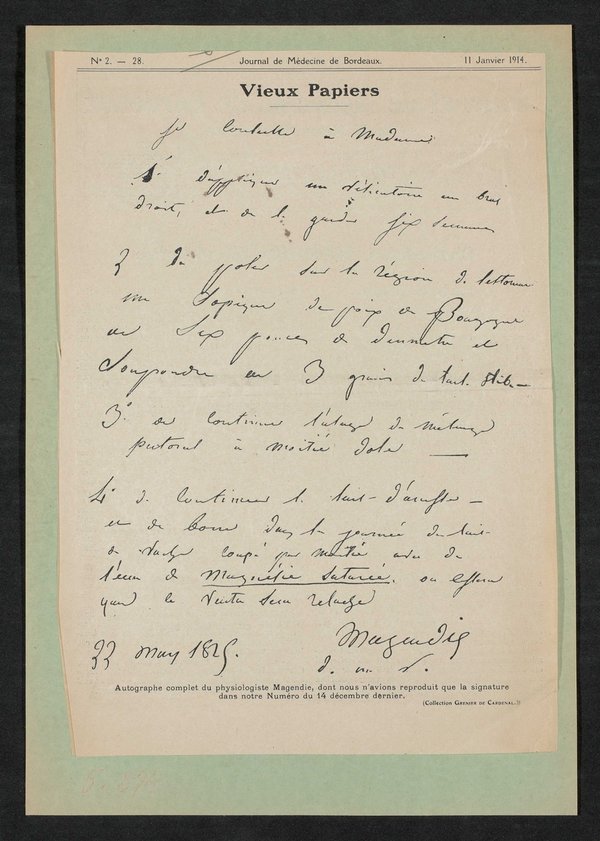 Nº 2. — 28. Journal de Médecine de Bordeaux. 11 Janvier 1914.
Vieux Papiers
je Conseille à Madame
1º d'appliquer un vésicatoire au bras
droit, et de le garder six semaines
2 de poser sur la région de l'estomac
un Topique de poix de Bourgogne
de Six pouces de diametre et
Saupoudré de 3 grains de tart. stibié
3º de continuer l'usage du mélange
pectoral à moitié dose —
4º de Continuer le lait d'anesse —
et de boire dans la journée du lait
de vache coupé par moitié avec de
l'eau de Magnésie saturée,
quand le ventre sera relaché
22 may 1825. Magendie
d. m. P.
Autographe complet du physiologiste Magendie, dont nous n'avions reproduit que la signature
dans notre Numéro du 14 décembre dernier.
(Collection GRENIER DE CARDENAL.)